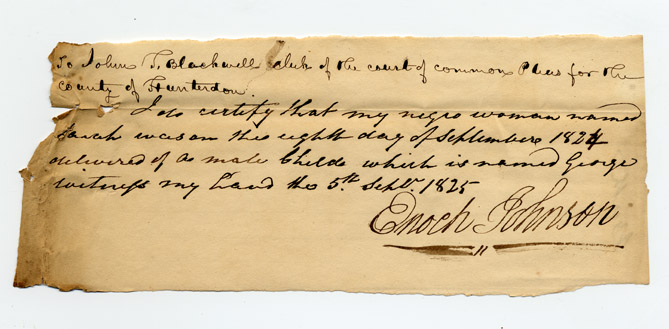 To John T. Blackwell Clerk of the court of common Pleas for the
County of Hunterdon.
I do certify that my negro woman named
Sarah was on the eighth day of September 1824
delivered of a male Childe which is named George
witness my hand the 5th Sept. 1825
Enoch Johnson